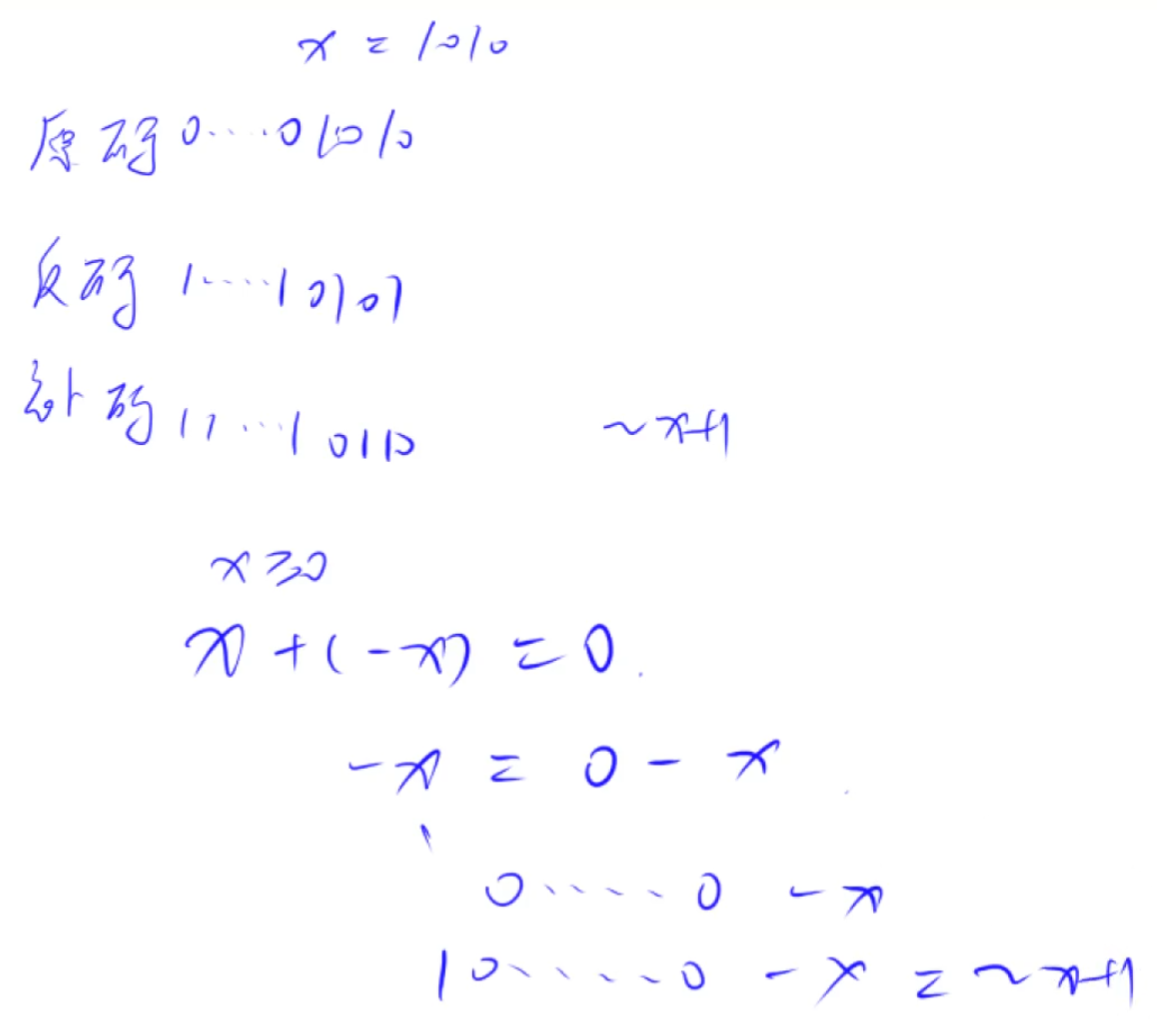 x = 1010
原码 0····01010
反码 1····10101
补码 11···10110 ~x+1
x≥0
x+(-x)=0.
-x = 0 - x
0····0 -x
10····0 -x = ~x+1